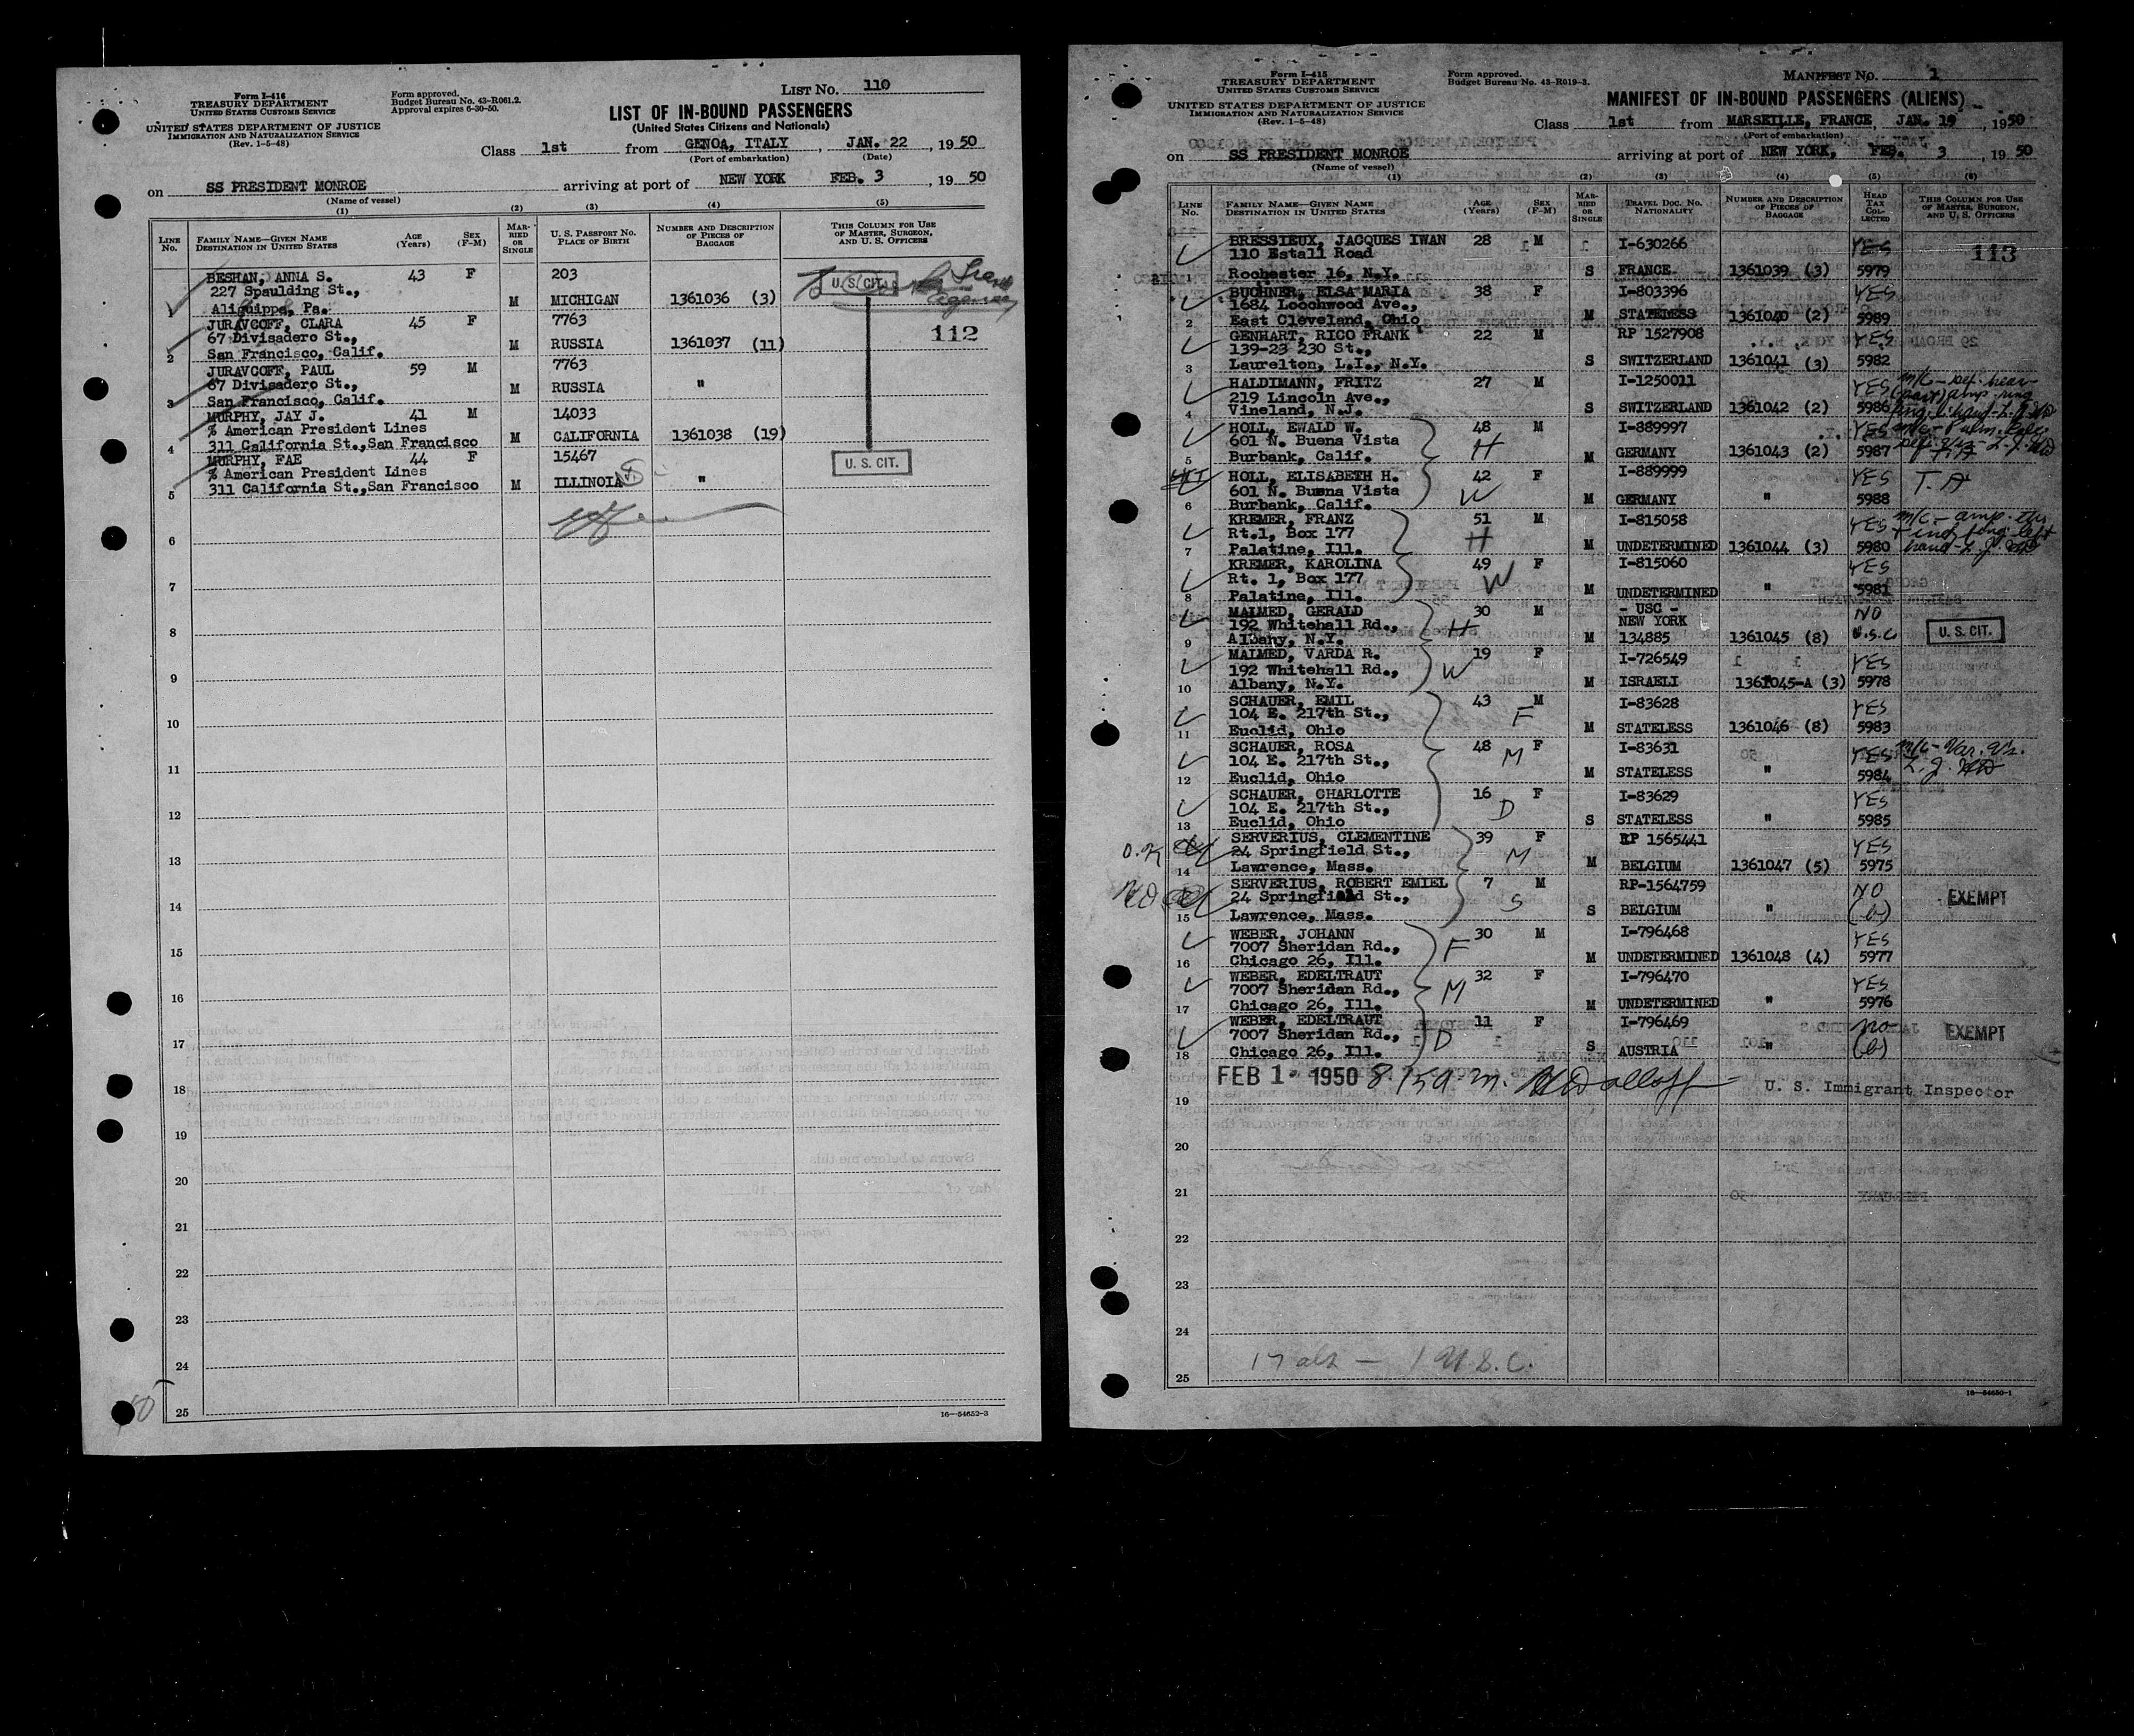 Form I-416
TREASURY DEPARTMENT
UNITED STATES CUSTOMS SERVICE
UNITED STATES DEPARTMENT OF JUSTICE
IMMIGRATION AND NATURALIZATION SERVICE
(Rev. 1-5-48)
Form approved.
Budget Bureau No. 43-R061.2.
Approval expires 6-30-50.
LIST NO. 110
LIST OF IN-BOUND PASSENGERS
(United States Citizens and Nationals)
Class 1st from GENOA, ITALY, JAN. 22, 1950
(Port of embarkation) (Date)
on SS PRESIDENT MONROE arriving at port of NEW YORK FEB. 3, 1950
(Name of vessel)
(1) (2) (3) (4) (5)
LINE NO. FAMILY NAME—GIVEN NAME DESTINATION IN UNITED STATES AGE (Years) SEX (F-M) MARRIED OR SINGLE U. S. PASSPORT NO. PLACE OF BIRTH NUMBER AND DESCRIPTION OF PIECES OF BAGGAGE THIS COLUMN FOR USE OF MASTER, SURGEON, AND U. S. OFFICERS
BESHAN, ANNA S. 43 F 203
227 Spaulding St.,
1 Aliquippa, Pa. M MICHIGAN 1361036 (3) U. S. CIT.
JURAVCOFF, CLARA 45 F 7763 112
67 Divisadero St.,
2 San Francisco, Calif. M RUSSIA 1361037 (11)
JURAVCOFF, PAUL 59 M 7763
67 Divisadero St.,
3 San Francisco, Calif. M RUSSIA "
MURPHY, JAY J. 41 M 14033
% American President Lines
4 311 California St.,San Francisco M CALIFORNIA 1361038 (19)
MURPHY, FAE 44 F 15467 U. S. CIT.
% American President Lines
5 311 California St.,San Francisco M ILLINOIS "
6
7
8
9
10
11
12
13
14
15
16
17
18
19
20
21
22
23
24
25
16—54652-3
Form I-415
TREASURY DEPARTMENT
UNITED STATES CUSTOMS SERVICE
UNITED STATES DEPARTMENT OF JUSTICE
IMMIGRATION AND NATURALIZATION SERVICE
(Rev. 1-5-48)
Form approved.
Budget Bureau No. 43-R019-3.
MANIFEST NO. 1
MANIFEST OF IN-BOUND PASSENGERS (ALIENS)
Class 1st from MARSEILLE, FRANCE, JAN. 19, 1950
(Port of embarkation)
on SS PRESIDENT MONROE arriving at port of NEW YORK, FEB. 3, 1950
(Name of vessel)
(1) (2) (3) (4) (5) (6)
LINE NO. FAMILY NAME—GIVEN NAME DESTINATION IN UNITED STATES AGE (Years) SEX (F-M) MARRIED OR SINGLE TRAVEL DOC. NO. NATIONALITY NUMBER AND DESCRIPTION OF PIECES OF BAGGAGE HEAD TAX COLLECTED THIS COLUMN FOR USE OF MASTER, SURGEON, AND U. S. OFFICERS
BRESSIEUX, JACQUES IWAN 28 M I-630266 YES 113
110 Estall Road
1 Rochester 16, N.Y. S FRANCE 1361039 (3) 5979
BUCHNER, ELSA MARIA 38 F I-803396 YES
1684 Loochwood Ave.,
2 East Cleveland, Ohio M STATELESS 1361040 (2) 5989
GENHART, RICO FRANK 22 M RP 1527908 YES
139-23 230 St.,
3 Laurelton, L.I., N.Y. S SWITZERLAND 1361041 (3) 5982
HALDIMANN, FRITZ 27 M I-1250011 YES
219 Lincoln Ave.,
4 Vineland, N.J. S SWITZERLAND 1361042 (2) 5986
HOLL, EWALD W. 48 M I-889997 YES
601 N. Buena Vista H
5 Burbank, Calif. M GERMANY 1361043 (2) 5987
HOLL, ELISABETH H. 42 F I-889999 YES T. A
601 N. Buena Vista W
6 Burbank, Calif. M GERMANY " 5988
KREMER, FRANZ 51 M I-815058 YES
Rt.1, Box 177 H
7 Palatine, Ill. M UNDETERMINED 1361044 (3) 5980
KREMER, KAROLINA 49 F I-815060 YES
Rt. 1, Box 177 W
8 Palatine, Ill. M UNDETERMINED " 5981
MALMED, GERALD 30 M - USC - NO
192 Whitehall Rd., H NEW YORK
9 Albany, N.Y. M 134885 1361045 (8) U.S.C U. S. CIT.
MALMED, VARDA R. 19 F I-726549 YES
192 Whitehall Rd., W
10 Albany, N.Y. M ISRAELI 1361045-A (3) 5978
SCHAUER, EMIL 43 M I-83628 YES
104 E. 217th St., F
11 Euclid, Ohio M STATELESS 1361046 (8) 5983
SCHAUER, ROSA 48 F I-83631 YES
104 E. 217th St., M
12 Euclid, Ohio M STATELESS " 5984
SCHAUER, CHARLOTTE 16 F I-83629 YES
104 E. 217th St., D
13 Euclid, Ohio S STATELESS " 5985
SERVERIUS, CLEMENTINE 39 F RP 1565441 YES
O.K 24 Springfield St., M
14 Lawrence, Mass. M BELGIUM 1361047 (5) 5975
SERVERIUS, ROBERT EMIEL 7 M RP-1564759 NO EXEMPT
24 Springfield St., S
15 Lawrence, Mass. S BELGIUM " (b)
WEBER, JOHANN 30 M I-796468 YES
7007 Sheridan Rd., F
16 Chicago 26, Ill. M UNDETERMINED 1361048 (4) 5977
WEBER, EDELTRAUT 32 F I-796470 YES
7007 Sheridan Rd., M
17 Chicago 26, Ill. M UNDETERMINED " 5976
WEBER, EDELTRAUT 11 F I-796469 no EXEMPT
7007 Sheridan Rd., D
18 Chicago 26, Ill. S AUSTRIA " (b)
FEB 1 - 1950 8:15 a.m. U. S. Immigrant Inspector
19
20
21
22
23
24
17 als — 1 U.S.C.
25
16—54650-1